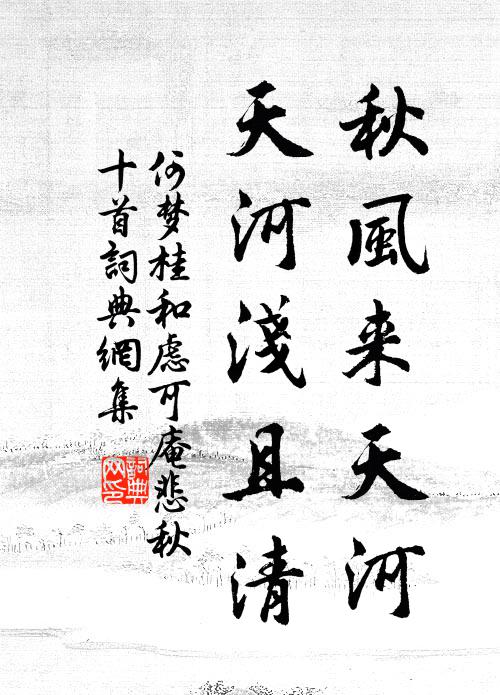 秋風来天河
天河淺且清
何梦桂和慮可庵悲秋
十首詞典網集
詞典網印